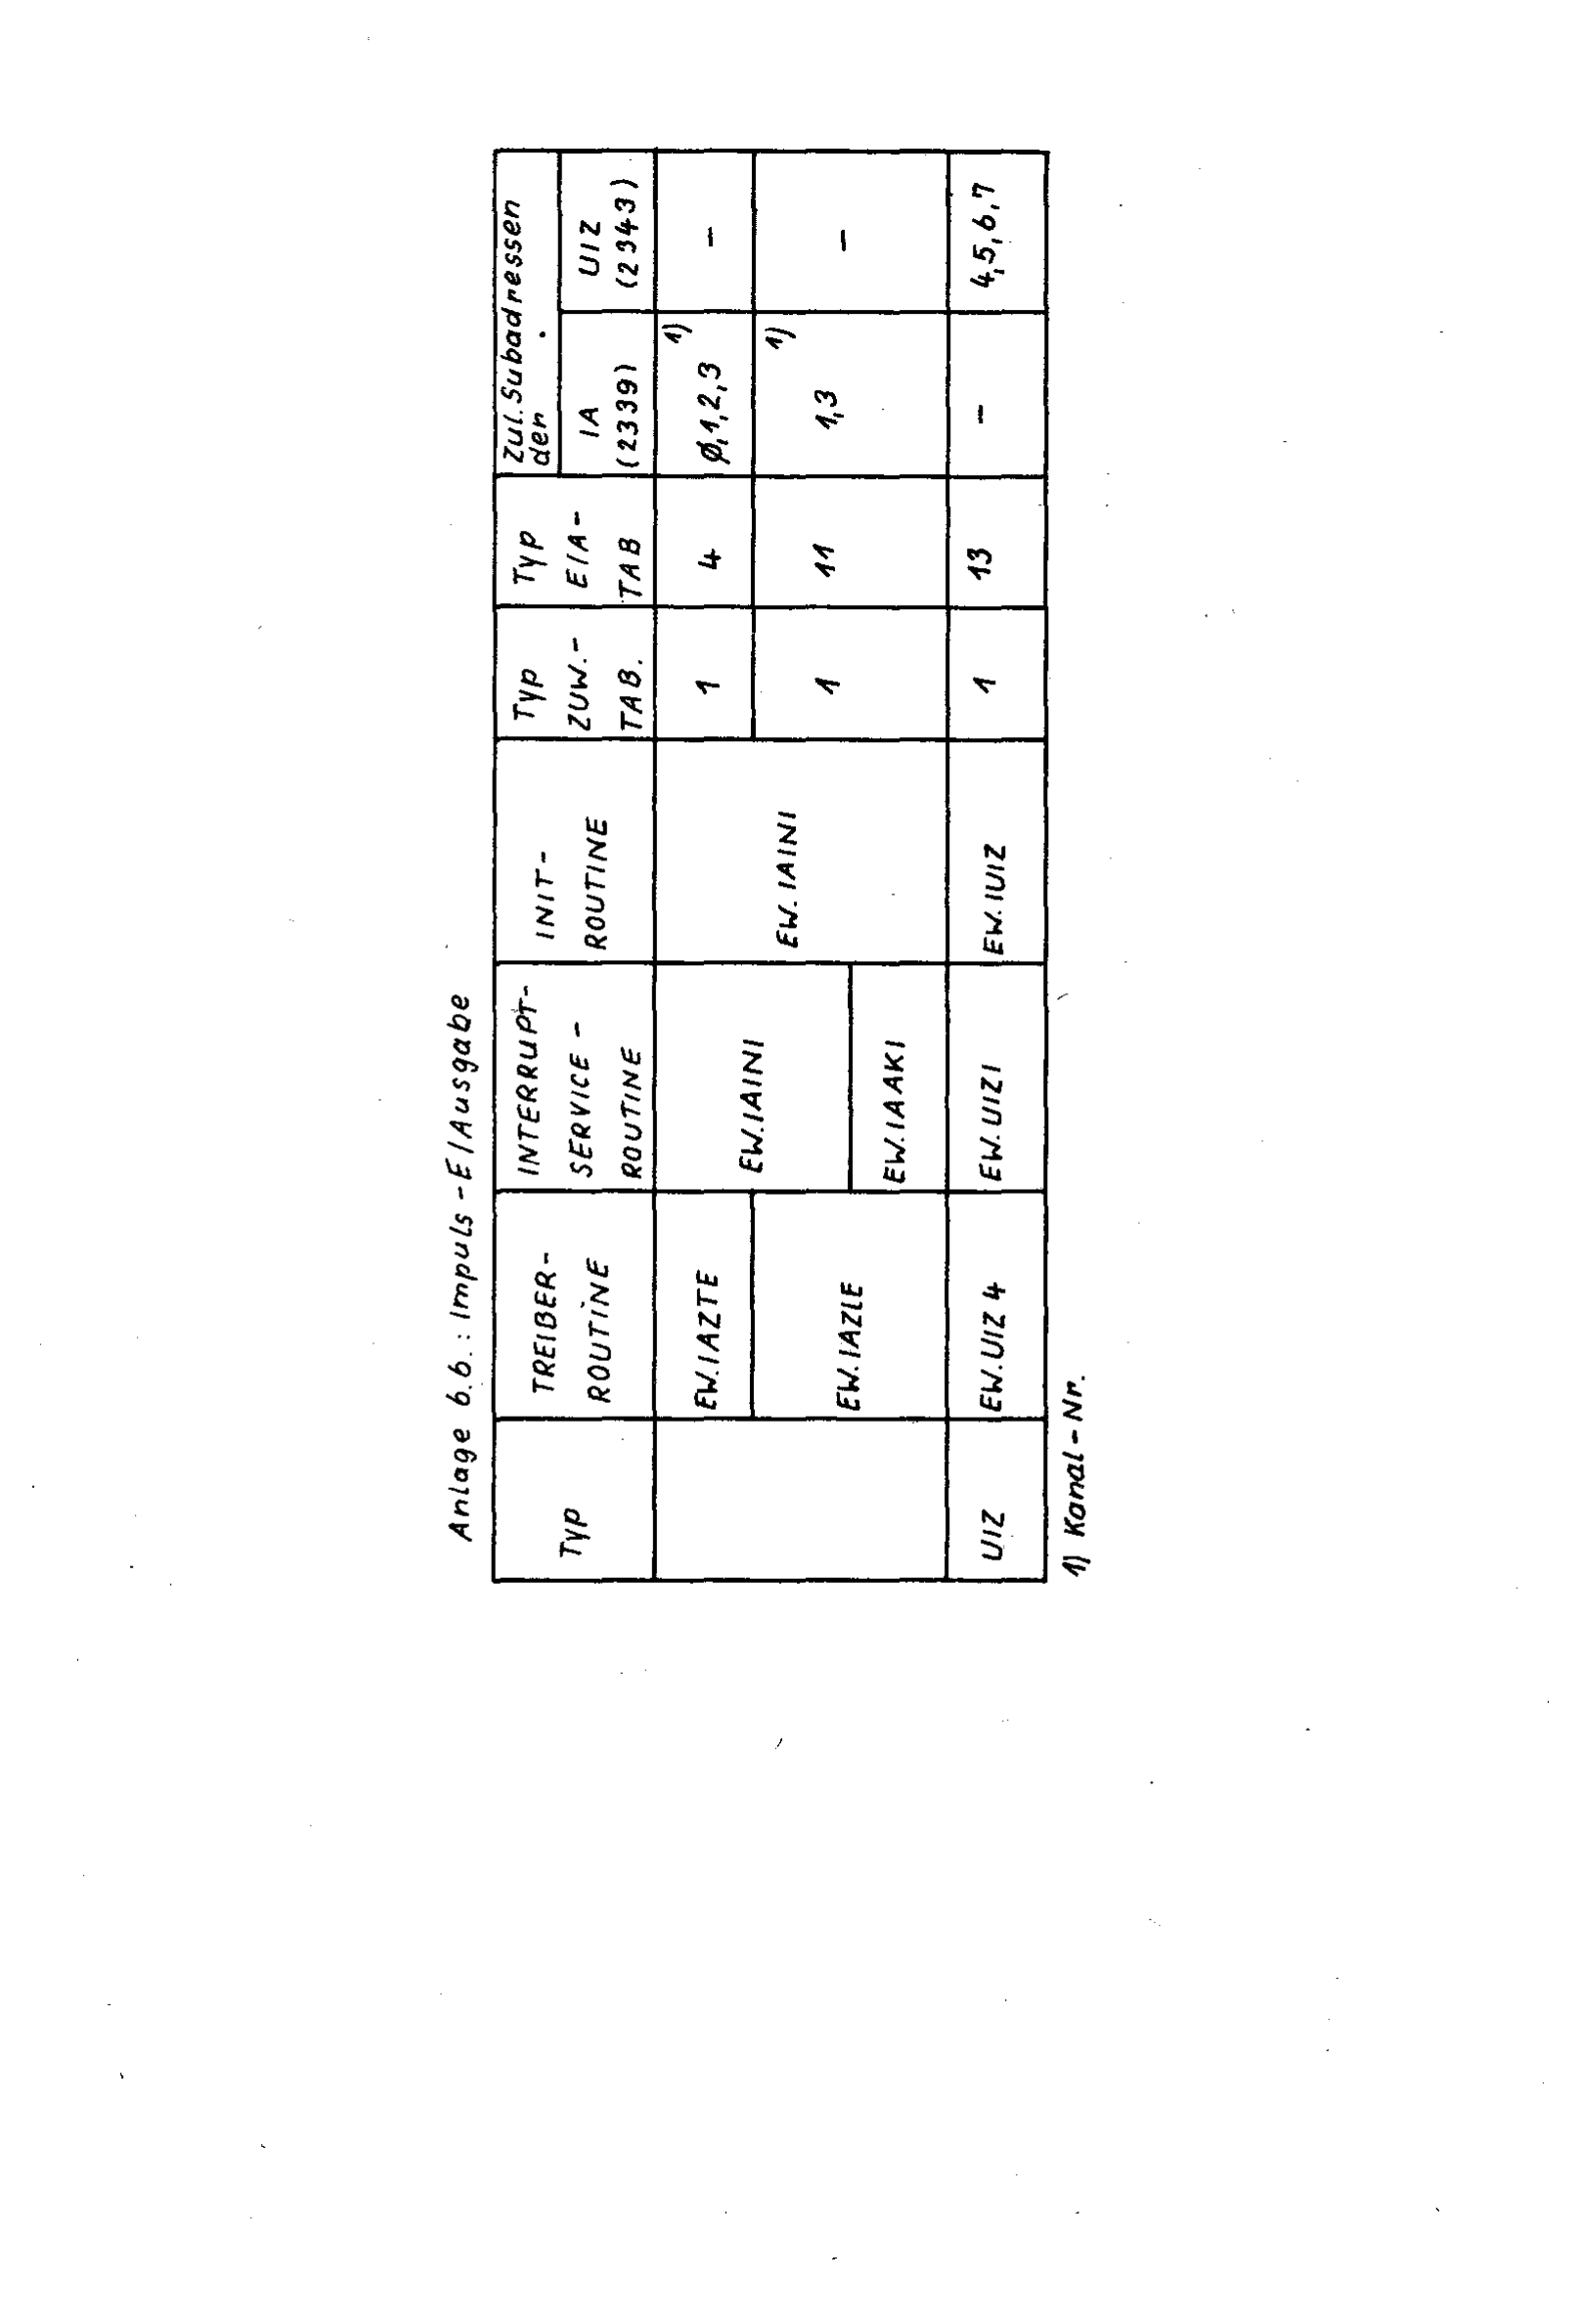 Anlage 6.6.: Impuls-E/Ausgabe
Typ
TREIBER-
ROUTINE
INTERRUPT-
SERVICE-
ROUTINE
INIT-
ROUTINE
Typ
ZUW.-
TAB.
Typ
E/A-
TAB
Zul. Subadressen
der
IA
(2339)
UIZ
(2343)
EW.IAZTE
EW.IAINI
EW.IAINI
1
4
Ø,1,2,3 1)
-
EW.IAZLE
EW.IAAKI
1
11
1,3 1)
-
UIZ
EW.UIZ 4
EW.UIZI
EW.IUIZ
1
13
-
4,5,6,7
1) Kanal-Nr.